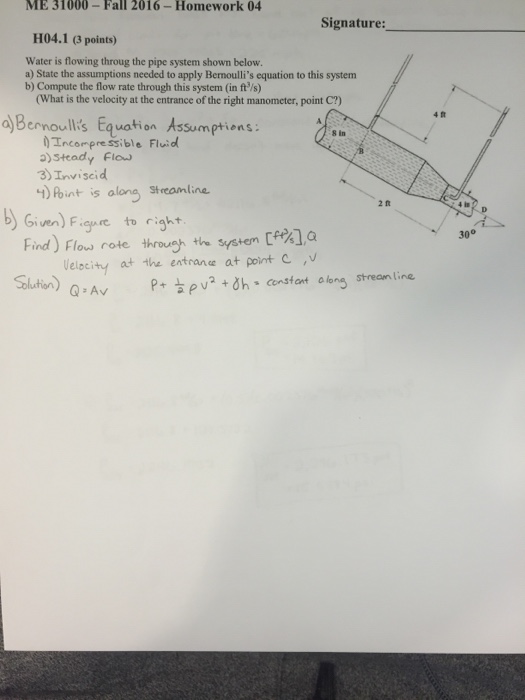 ME 31000 – Fall 2016 – Homework 04
Signature:
H04.1 (3 points)
Water is flowing throug the pipe system shown below.
a) State the assumptions needed to apply Bernoulli's equation to this system
b) Compute the flow rate through this system (in ft³/s)
(What is the velocity at the entrance of the right manometer, point C?)
A
8 in
B
4 ft
2 ft
C
4 in
D
30°
a) Bernoulli's Equation Assumptions:
1) Incompressible Fluid
2) Steady Flow
3) Inviscid
4) Point is along streamline
b) Given) Figure to right.
Find) Flow rate through the system [ft³/s], Q
Velocity at the entrance at point C, V
Solution) Q=AV P+ ½ρv² + γh = constant along streamline